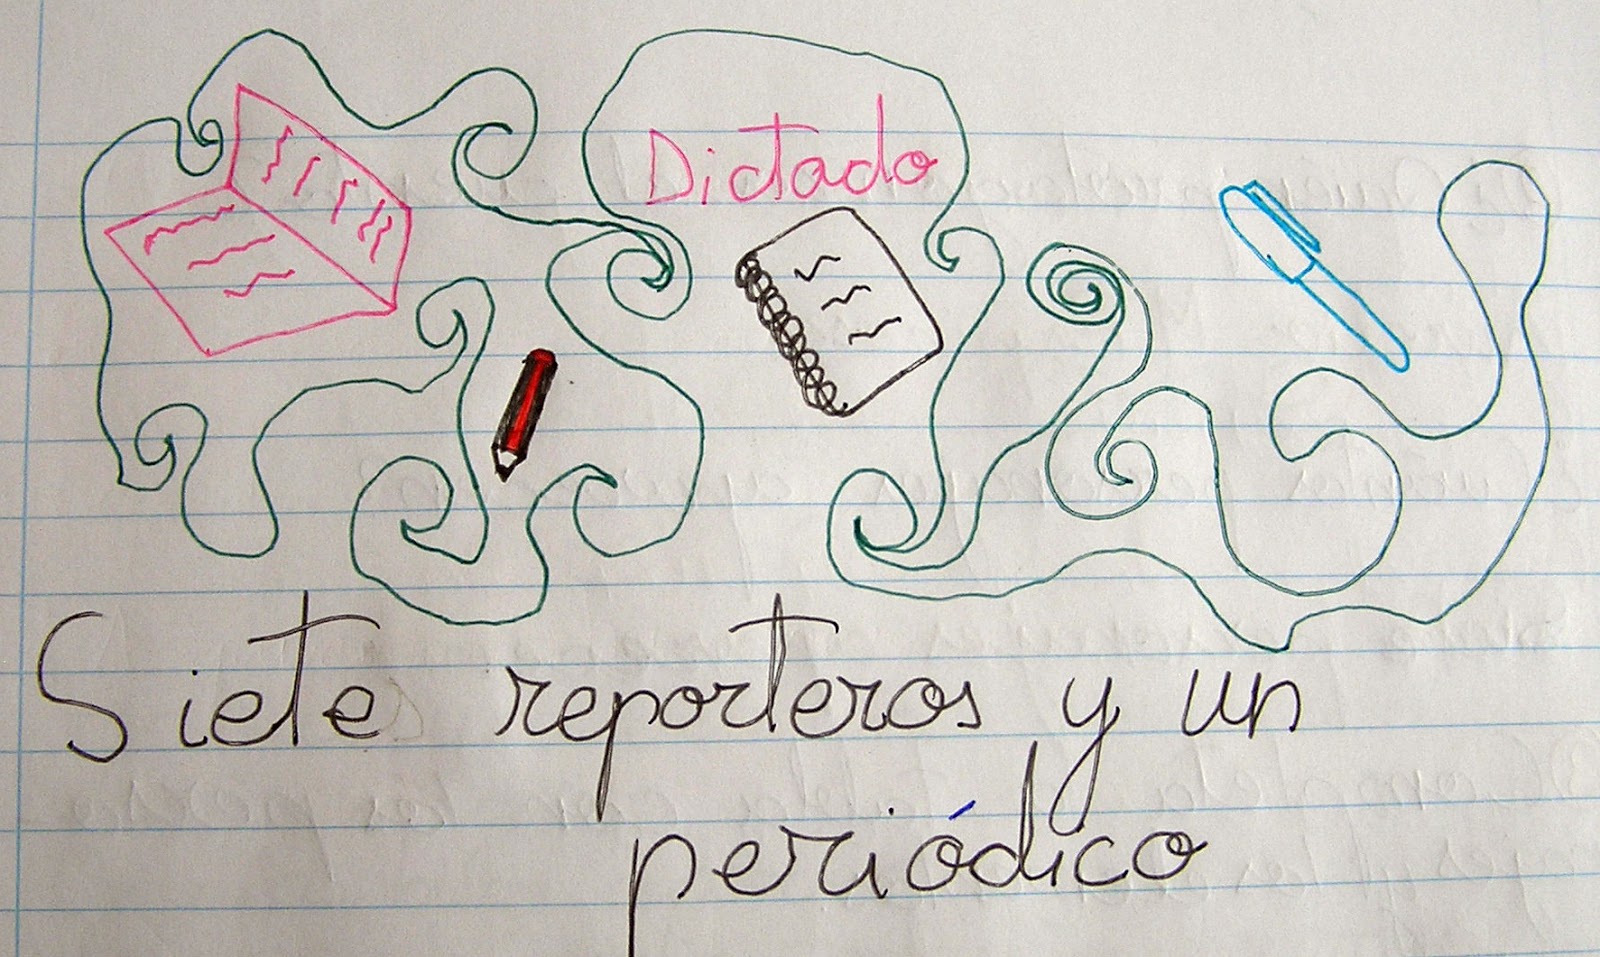 Dictado
Siete reporteros y un
periódico